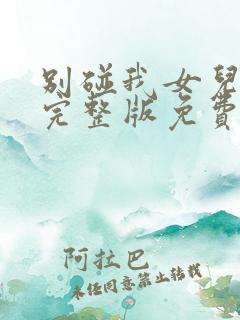 别碰我女兒
完整版免費
阿拉巴
未经同意禁止转载